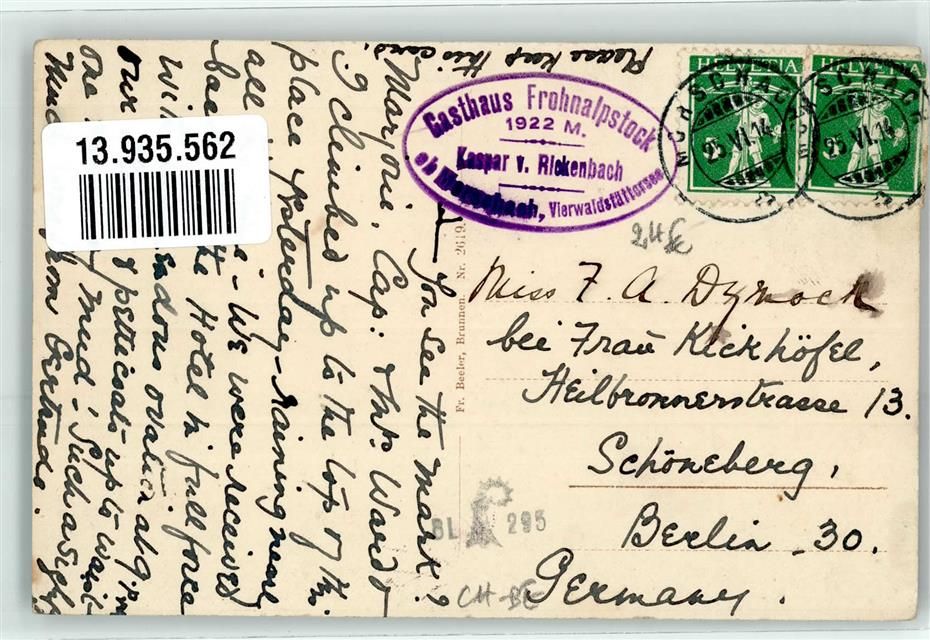 Please keep this card.
You see the mark?
Marjorie, Cap: & Mrs Ward &
I climbed up to the top of this
place yesterday - raining near
all
- We were received
the Hotel in full force
ovation at 9 p.m
our petticoats up to waist
one mud! Such a sight
from Gertrude.
13.935.562
Gasthaus Frohnalpstock
1922 M.
Kaspar v. Rickenbach
ob Morschach, Vierwaldstättersee
HELVETIA
HELVETIA
MORSCHACH
25.VI.14
MORSCHACH
25.VI.14
Fr. Beeler, Brunnen. Nr. 2619.
Miss F. A. Dymock
bei Frau Kickhöfel,
Heilbronnerstrasse 13.
Schöneberg,
Berlin - 30.
Germany.
BL 295
CH-BE